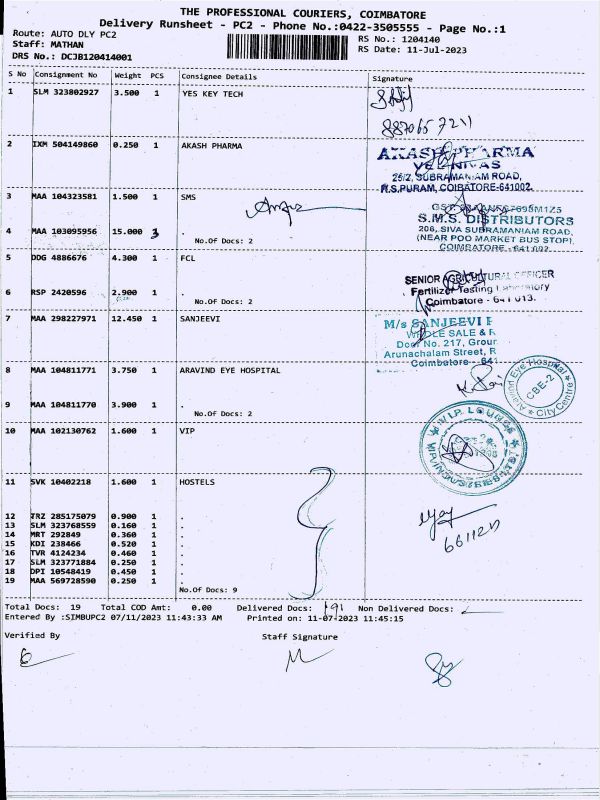 THE PROFESSIONAL COURIERS, COIMBATORE
Delivery Runsheet - PC2 - Phone No.:0422-3505555 - Page No.:1
Route: AUTO DLY PC2
RS No.: 1204140
Staff: MATHAN
RS Date: 11-Jul-2023
DRS No.: DCJB120414001
S No Consignment No Weight PCS Consignee Details Signature
1 SLM 323802927 3.500 1 YES KEY TECH
8870657211
2 IXM 504149860 0.250 1 AKASH PHARMA
AKASH PHARMA
25/2, SUBRAMANIAM ROAD,
R.S.PURAM, COIBATORE-641002.
3 MAA 104323581 1.500 1 SMS
S.M.S. DISTRIBUTORS
206, SIVA SUBRAMANIAM ROAD,
(NEAR POO MARKET BUS STOP),
COIMBATORE - 641 002.
4 MAA 103095956 15.000 3 .
No.Of Docs: 2
5 DDG 4886676 4.300 1 FCL
SENIOR AGRICULTURAL OFFICER
Fertilizer Testing Laboratory
Coimbatore - 641 013.
6 RSP 2420596 2.900 1 .
No.Of Docs: 2
7 MAA 298227971 12.450 1 SANJEEVI
M/s SANJEEVI
WHOLE SALE & R
Door No. 217, Groun
Arunachalam Street, R
Coimbatore - 641
8 MAA 104811771 3.750 1 ARAVIND EYE HOSPITAL
Aravind Eye Hospital
CBE-2
City Centre
9 MAA 104811770 3.900 1 .
No.Of Docs: 2
10 MAA 102130762 1.600 1 VIP
V.I.P. LOUNGE
VIP INDUSTRIES LTD
11 SVK 10402218 1.600 1 HOSTELS
12 TRZ 285175079 0.900 1 .
13 SLM 323768559 0.160 1 .
14 MRT 292849 0.360 1 .
15 KDI 238466 0.520 1 .
16 TVR 4124234 0.460 1 .
17 SLM 323771884 0.250 1 .
18 DPI 10548419 0.450 1 .
19 MAA 569728590 0.250 1 .
No.Of Docs: 9
Total Docs: 19 Total COD Amt: 0.00 Delivered Docs: 19 Non Delivered Docs:
Entered By :SIMBUPC2 07/11/2023 11:43:33 AM Printed on: 11-07-2023 11:45:15
Verified By Staff Signature